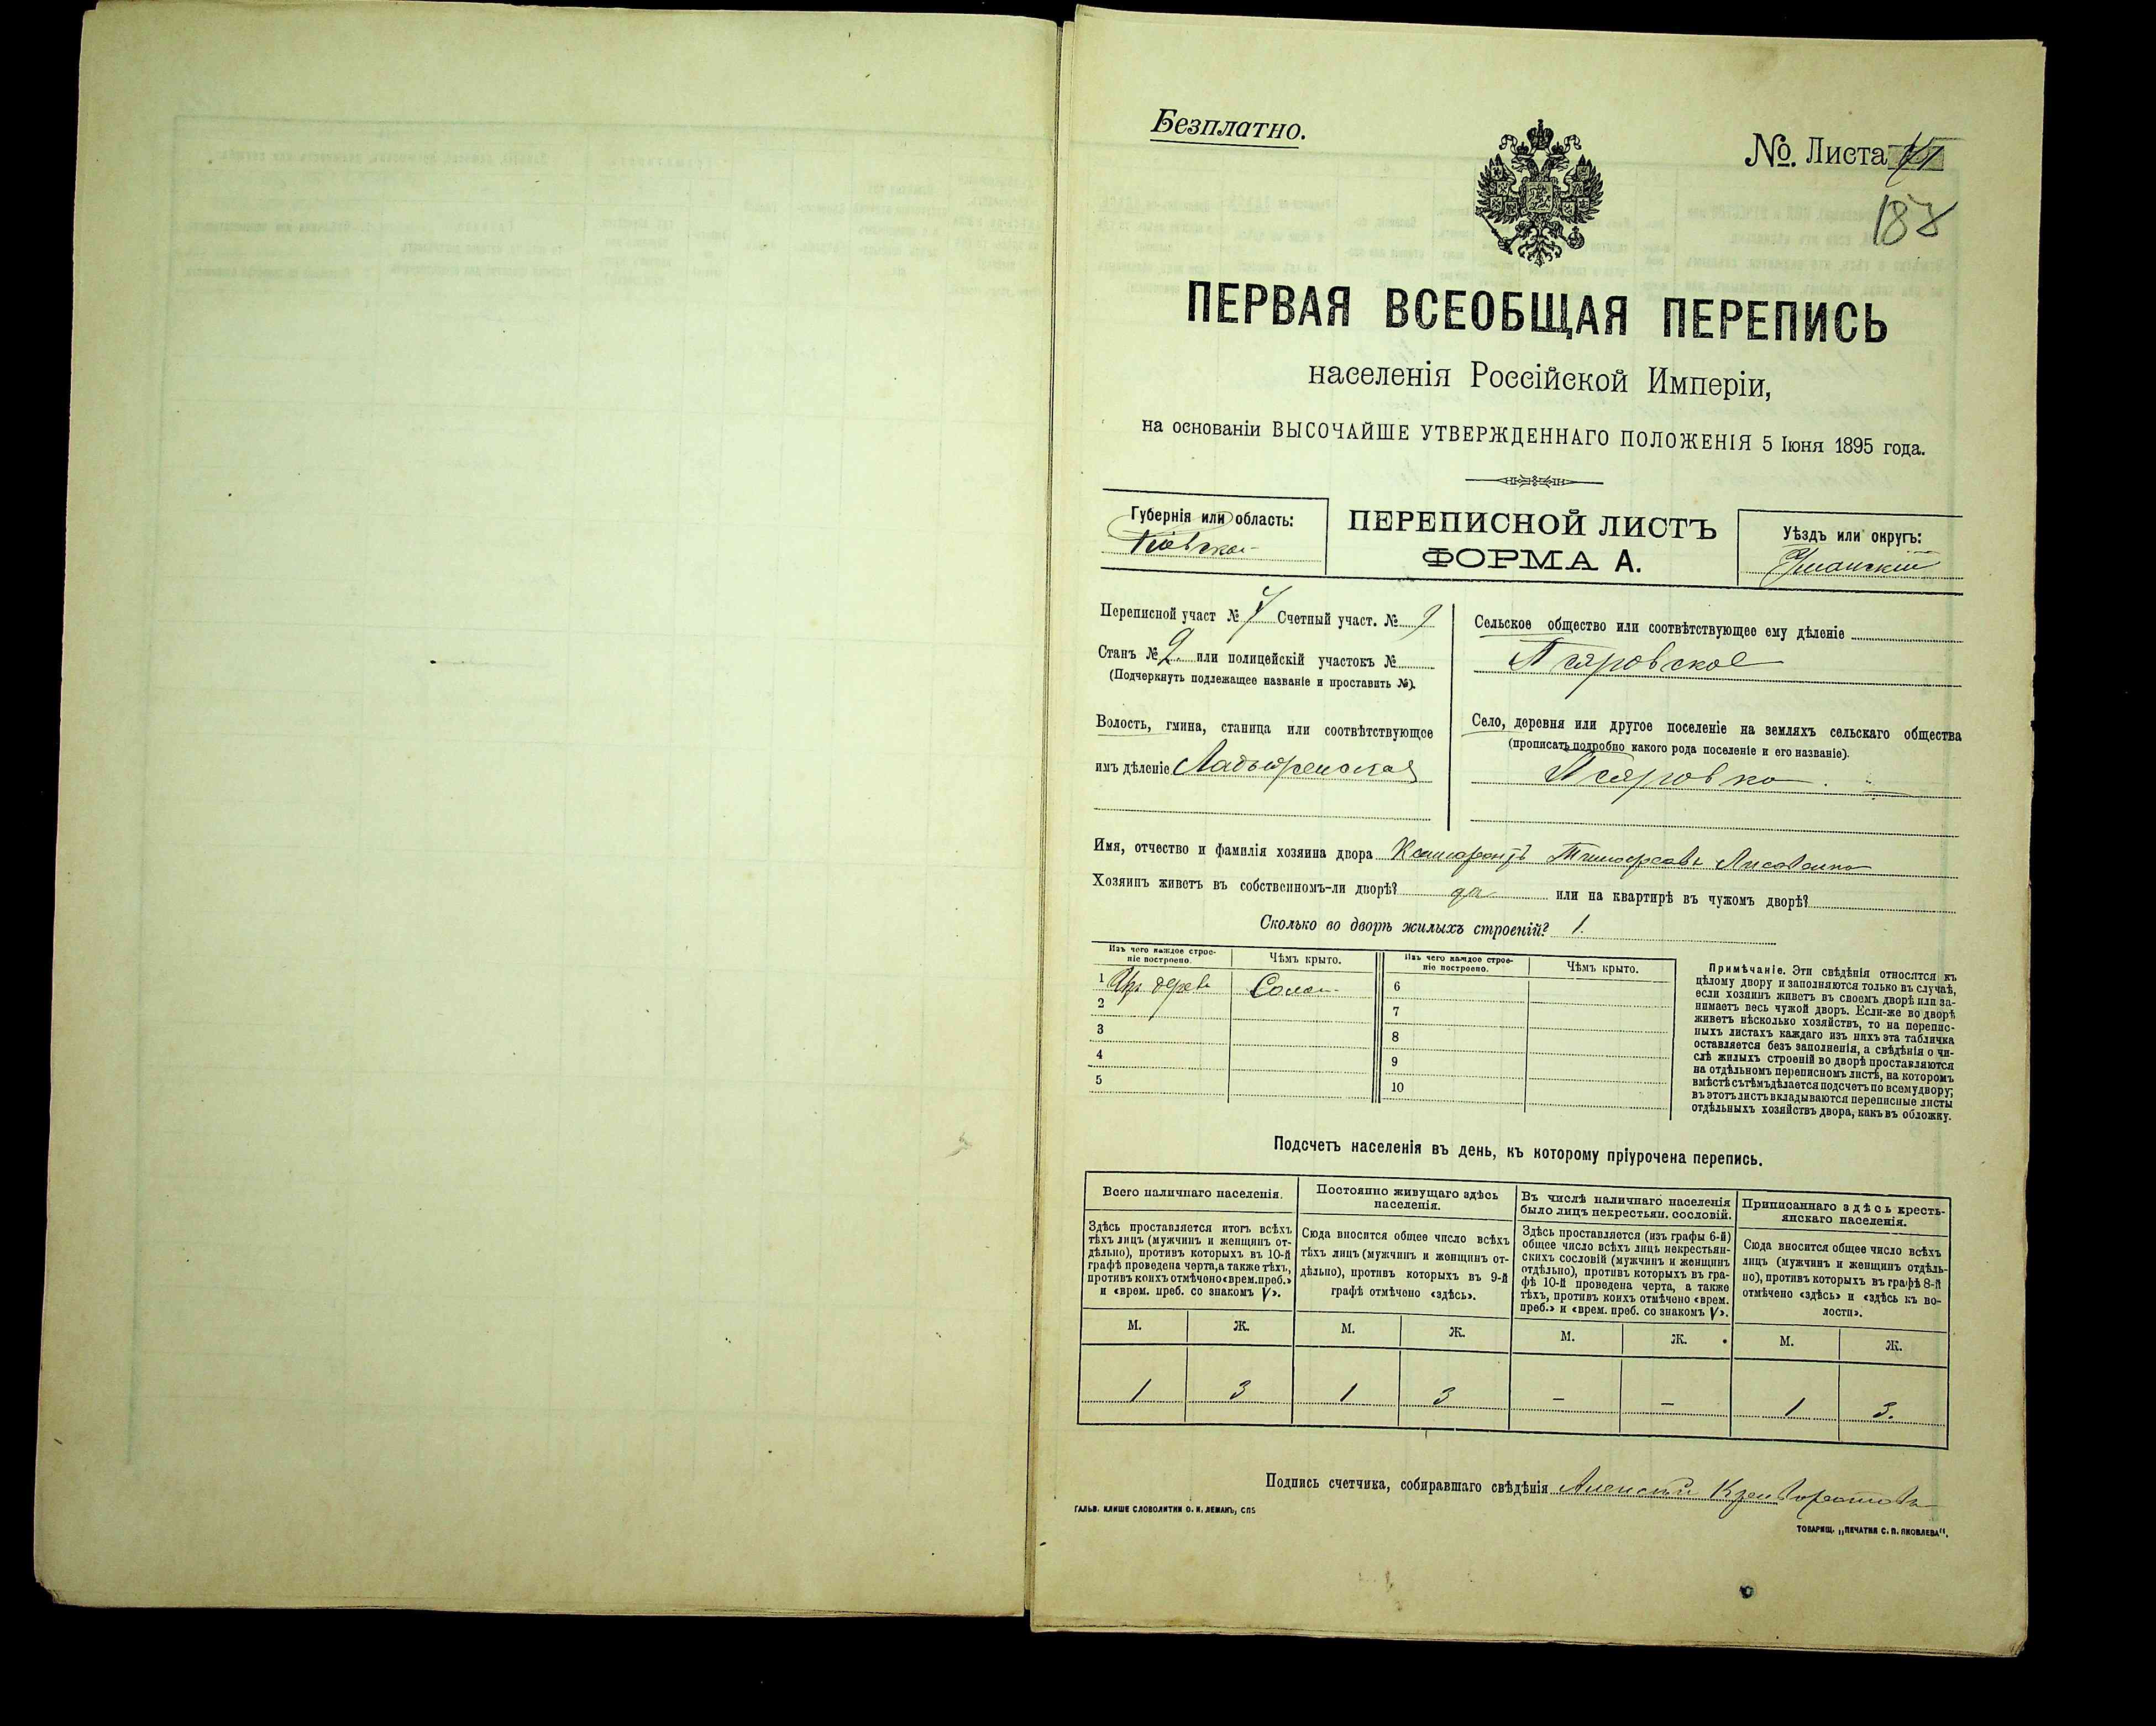 Безплатно.
№. Листа
188
ПЕРВАЯ ВСЕОБЩАЯ ПЕРЕПИСЬ
населенія Россійской Имперіи,
на основаніи ВЫСОЧАЙШЕ УТВЕРЖДЕННАГО ПОЛОЖЕНІЯ 5 Іюня 1895 года.
Губернія или область:
Кіевская
ПЕРЕПИСНОЙ ЛИСТЪ
ФОРМА А.
Уѣздъ или округъ:
Уманскій
Переписной участ № Счетный участ. №
Станъ № 2. или полицейскій участокъ №
(Подчеркнуть подлежащее названіе и проставить №).
Волость, гмина, станица или соотвѣтствующее
имъ дѣленіе Ладыженская
Сельское общество или соотвѣтствующее ему дѣленіе
Псяровское
Село, деревня или другое поселеніе на земляхъ сельскаго общества
(прописать подробно какого рода поселеніе и его названіе).
Псяровка
Имя, отчество и фамилія хозяина двора
Хозяинъ живетъ въ собственномъ-ли дворѣ? да или на квартирѣ въ чужомъ дворѣ?
Сколько во дворѣ жилыхъ строеній? 1.
Изъ чего каждое строе-
ніе построено.
Чѣмъ крыто.
Изъ чего каждое строе-
ніе построено.
Чѣмъ крыто.
1 Изъ дерева Солом.
2
3
4
5
6
7
8
9
10
Примѣчаніе. Эти свѣдѣнія относятся къ
цѣлому двору и заполняются только въ случаѣ,
если хозяинъ живетъ въ своемъ дворѣ или за-
нимаетъ весь чужой дворъ. Если-же во дворѣ
живетъ нѣсколько хозяйствъ, то на перепис-
ныхъ листахъ каждаго изъ нихъ эта табличка
оставляется безъ заполненія, а свѣдѣнія о чи-
слѣ жилыхъ строеній во дворѣ проставляются
на отдѣльномъ переписномъ листѣ, на которомъ
вмѣстѣ съ тѣмъ дѣлается подсчетъ по всему двору;
въ этотъ листъ вкладываются переписные листы
отдѣльныхъ хозяйствъ двора, какъ въ обложку.
Подсчетъ населенія въ день, къ которому пріурочена перепись.
Всего наличнаго населенія.
Здѣсь проставляется итогъ всѣхъ
тѣхъ лицъ (мужчинъ и женщинъ от-
дѣльно), противъ которыхъ въ 10-й
графѣ проведена черта, а также тѣхъ,
противъ коихъ отмѣчено «врем. преб.»
и «врем. преб. со знакомъ V».
Постоянно живущаго здѣсь
населенія.
Сюда вносится общее число всѣхъ
тѣхъ лицъ (мужчинъ и женщинъ от-
дѣльно), противъ которыхъ въ 9-й
графѣ отмѣчено «здѣсь».
Въ числѣ наличнаго населенія
было лицъ некрестьян. сословій.
Здѣсь проставляется (изъ графы 6-й)
общее число всѣхъ лицъ некрестьян-
скихъ сословій (мужчинъ и женщинъ
отдѣльно), противъ которыхъ въ гра-
фѣ 10-й проведена черта, а также
тѣхъ, противъ коихъ отмѣчено «врем.
преб.» и «врем. преб. со знакомъ V».
Приписаннаго здѣсь кресть-
янскаго населенія.
Сюда вносится общее число всѣхъ
лицъ (мужчинъ и женщинъ отдѣль-
но), противъ которыхъ въ графѣ 8-й
отмѣчено «здѣсь» и «здѣсь къ во-
лости».
М. Ж. М. Ж. М. Ж. М. Ж.
1 3 1 3 – – 1 3.
Подпись счетчика, собиравшаго свѣдѣнія Алексѣй
ГАЛЬВ. КЛИШЕ СЛОВОЛИТНИ О. И. ЛЕМАНЪ, СПБ
ТОВАРИЩ. „ПЕЧАТНЯ С. П. ЯКОВЛЕВА“.